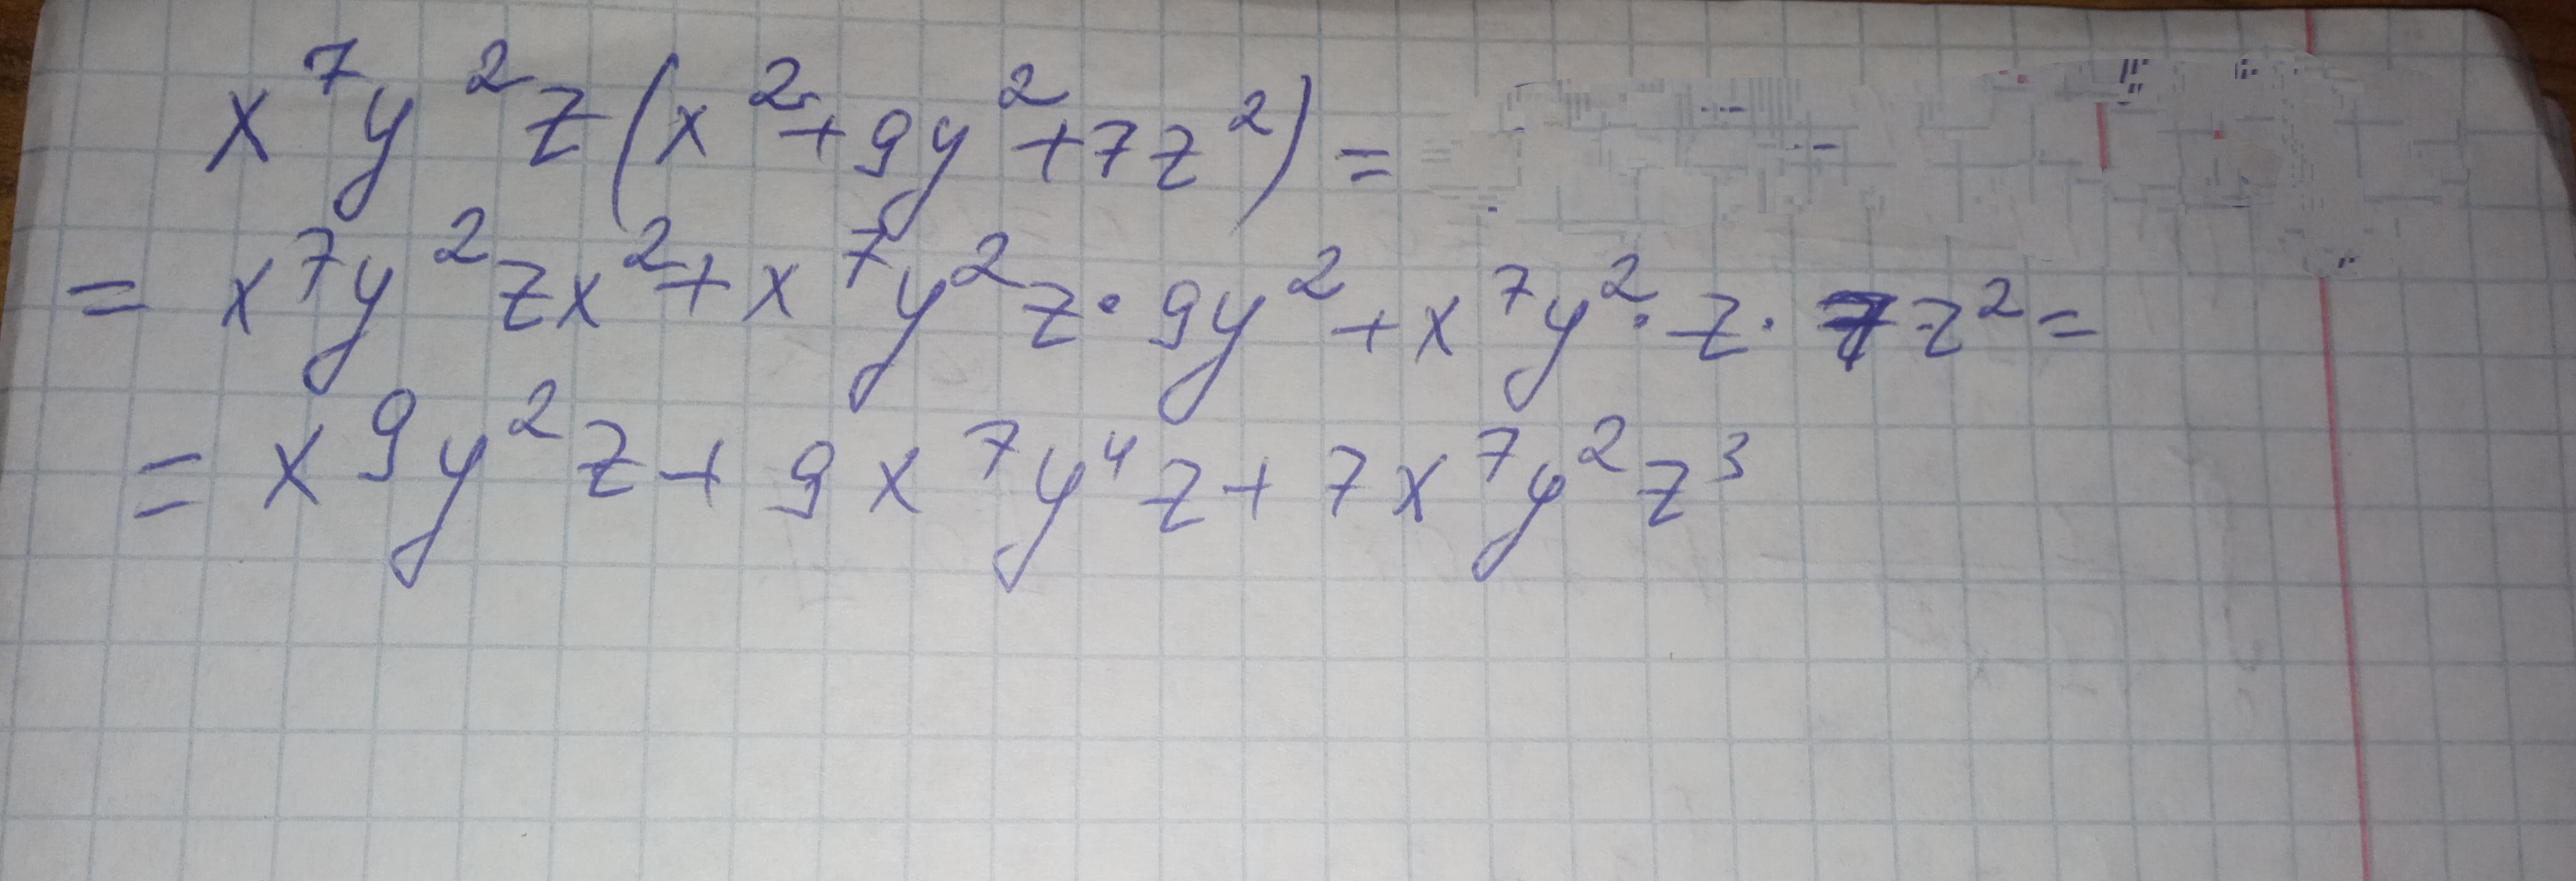 x⁷y²z(x²+9y²+7z²)=
= x⁷y²zx²+x⁷y²z·9y²+x⁷y²·z·7z²=
= x⁹y²z+9x⁷y⁴z+7x⁷y²z³